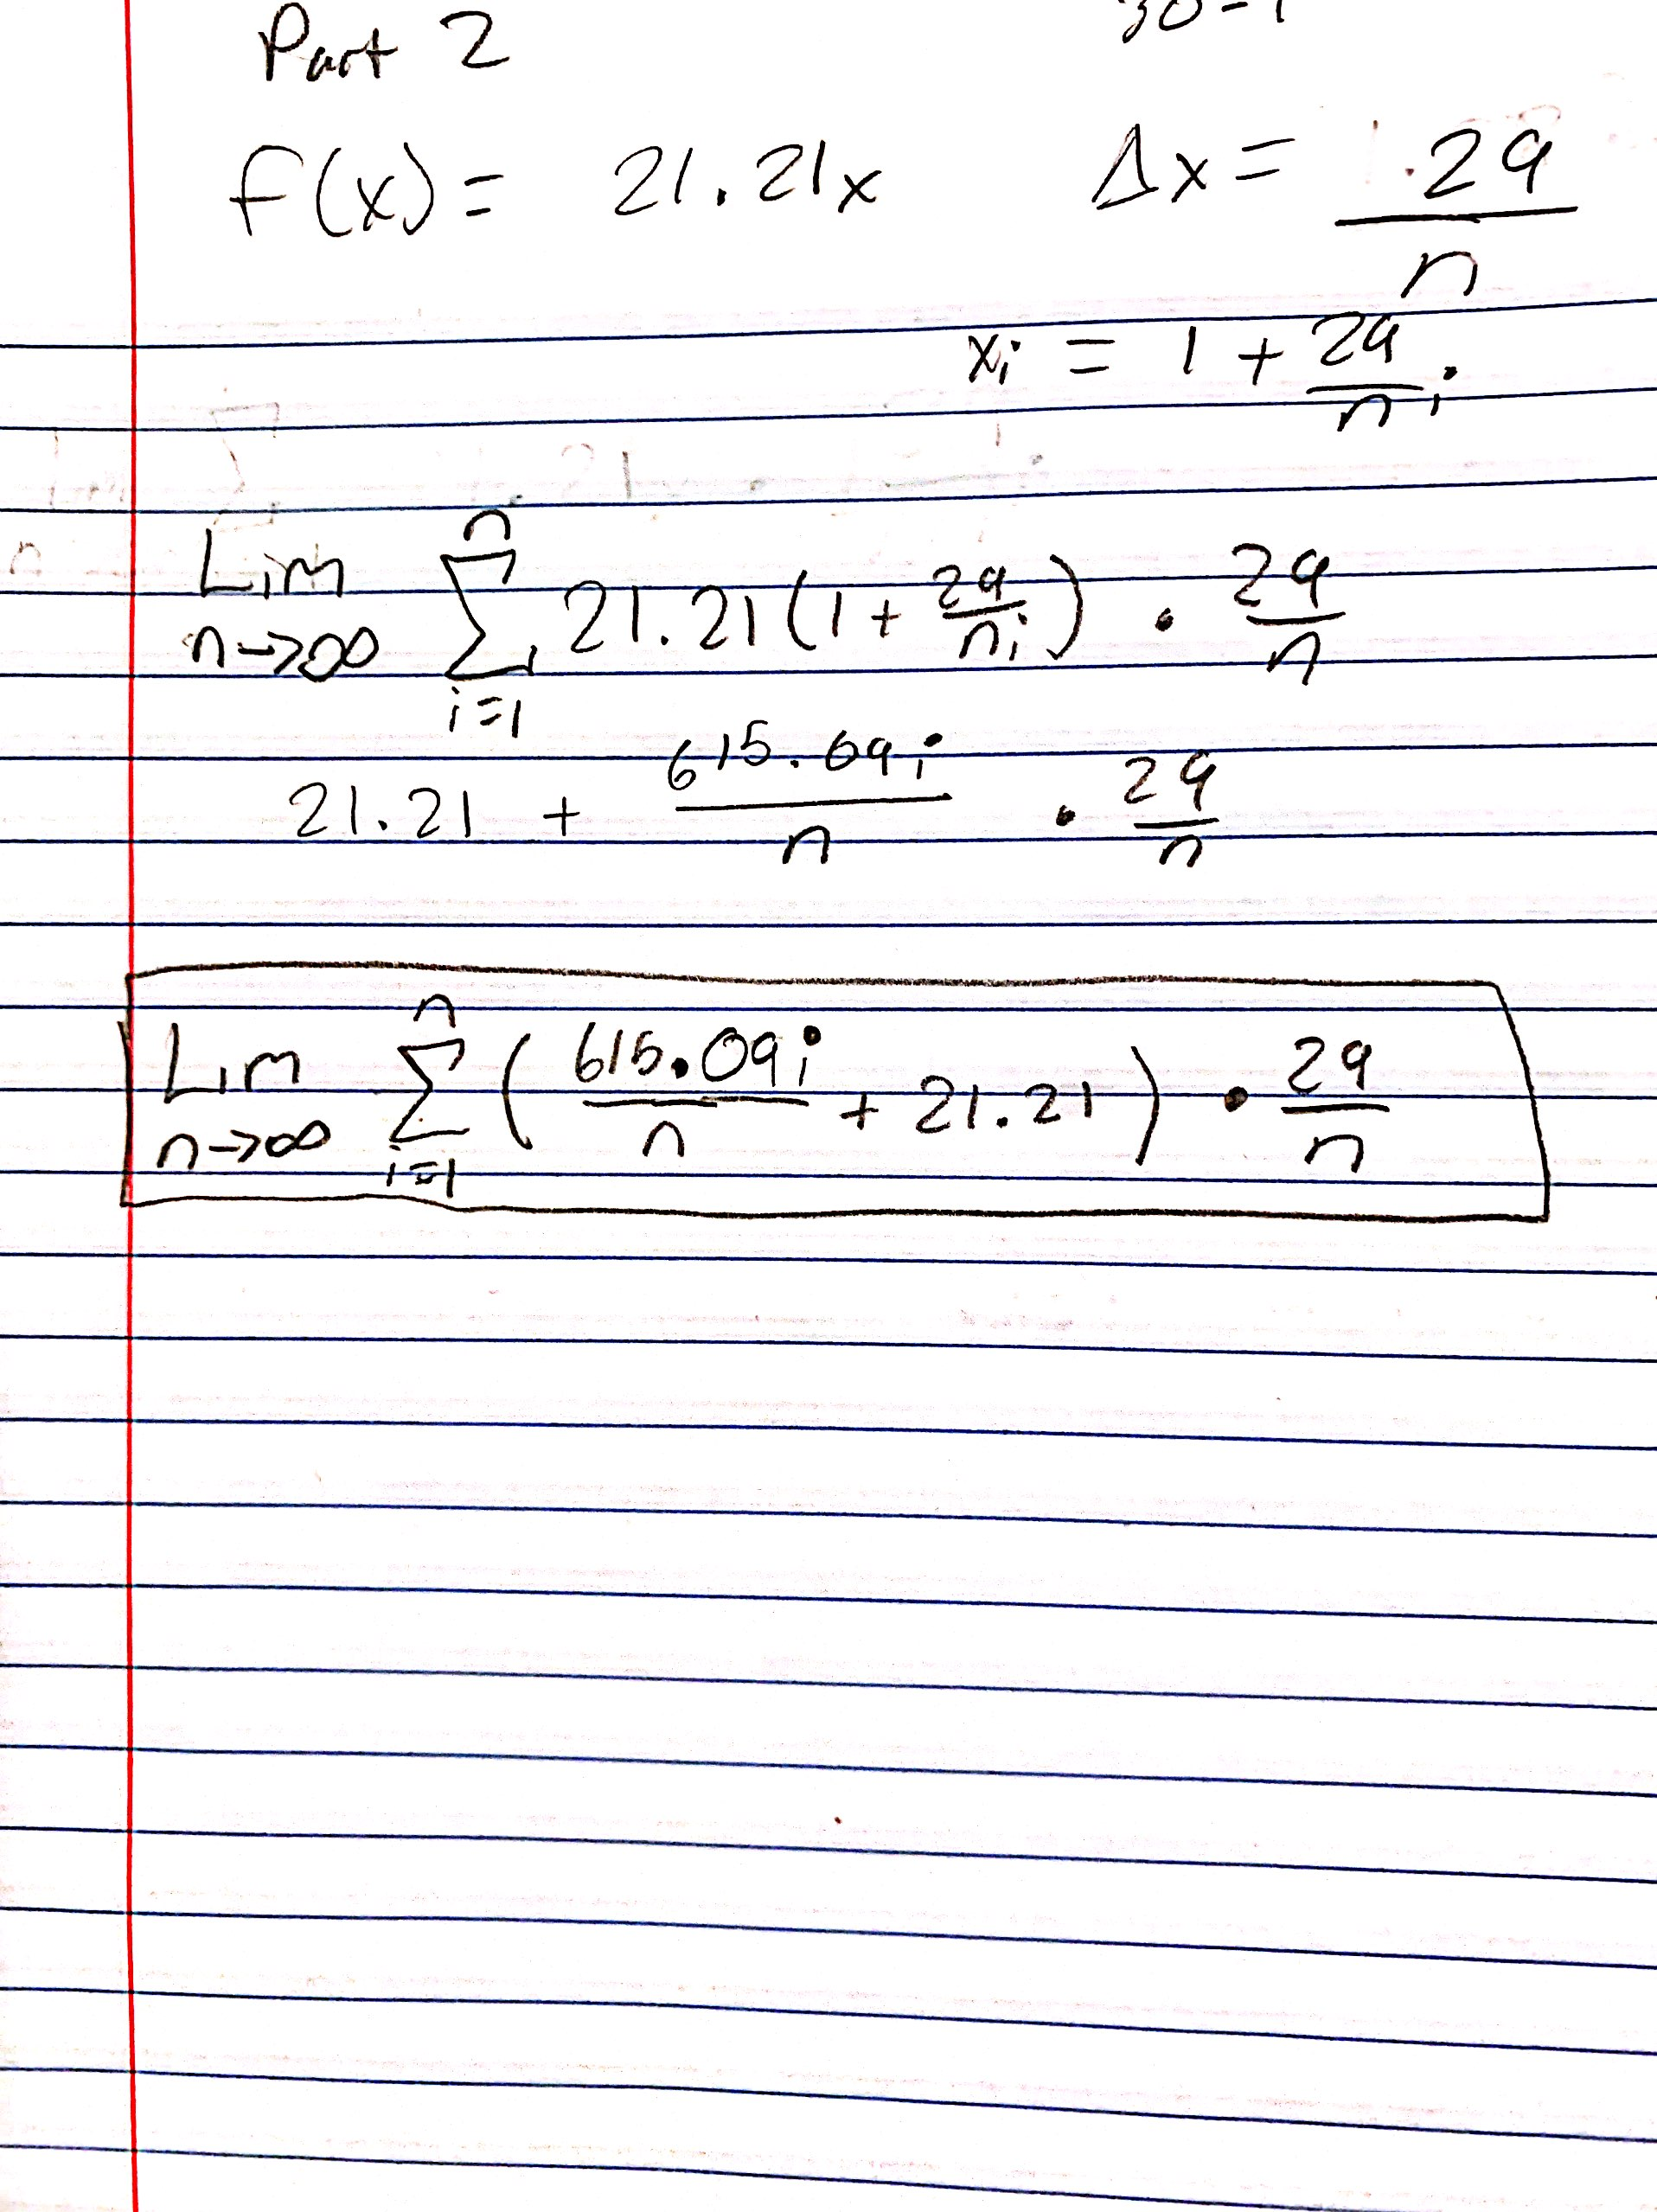 30-1
Part 2
f(x) = 21.21x Δx = 29/n
xi = 1 + 29/n i
Lim n→∞ n Σ i=1 21.21(1 + 29/n i) · 29/n
21.21 + 615.09i/n · 29/n
Lim n→∞ n Σ i=1 (615.09i/n + 21.21) · 29/n